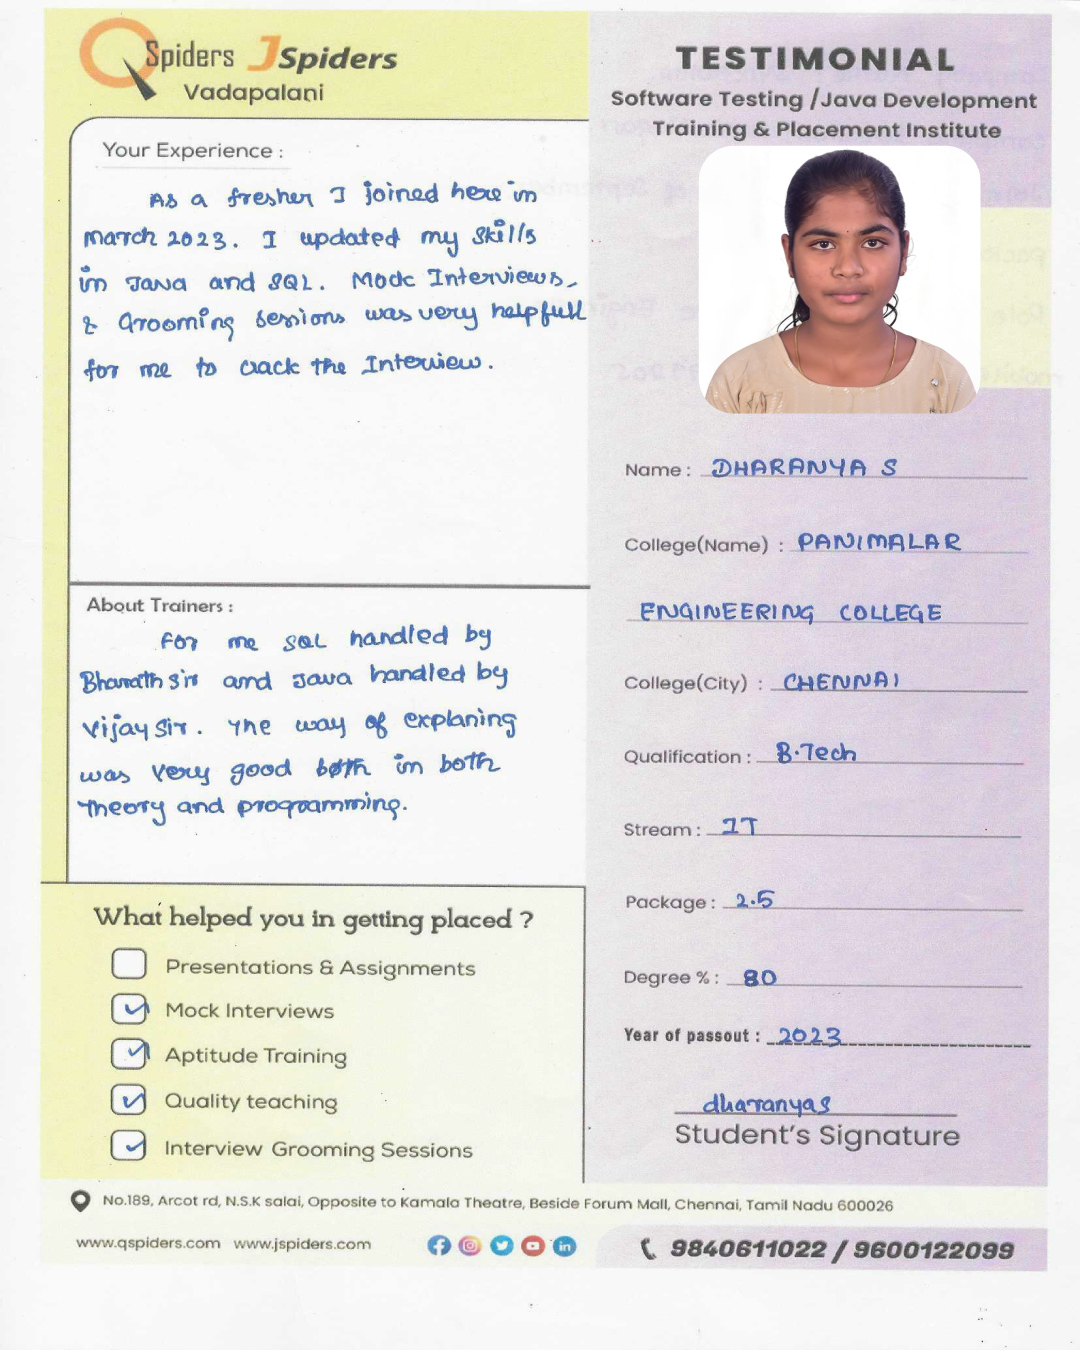 QSpiders JSpiders
Vadapalani
Your Experience :
As a fresher I joined here in
March 2023. I updated my skills
in Java and SQL. Mock Interviews,
& Grooming sessions was very helpfull
for me to crack the Interview.
About Trainers :
For me SQL handled by
Bharath sir and Java handled by
Vijay Sir. The way of explaning
was very good both in both
theory and programming.
What helped you in getting placed ?
Presentations & Assignments
Mock Interviews
Aptitude Training
Quality teaching
Interview Grooming Sessions
TESTIMONIAL
Software Testing /Java Development
Training & Placement Institute
Name : DHARANYA S
College(Name) : PANIMALAR
ENGINEERING COLLEGE
College(City) : CHENNAI
Qualification : B.Tech
Stream : IT
Package : 2.5
Degree % : 80
Year of passout : 2023
dharanyas
Student's Signature
No.189, Arcot rd, N.S.K salai, Opposite to Kamala Theatre, Beside Forum Mall, Chennai, Tamil Nadu 600026
www.qspiders.com www.jspiders.com
9840611022 / 9600122099